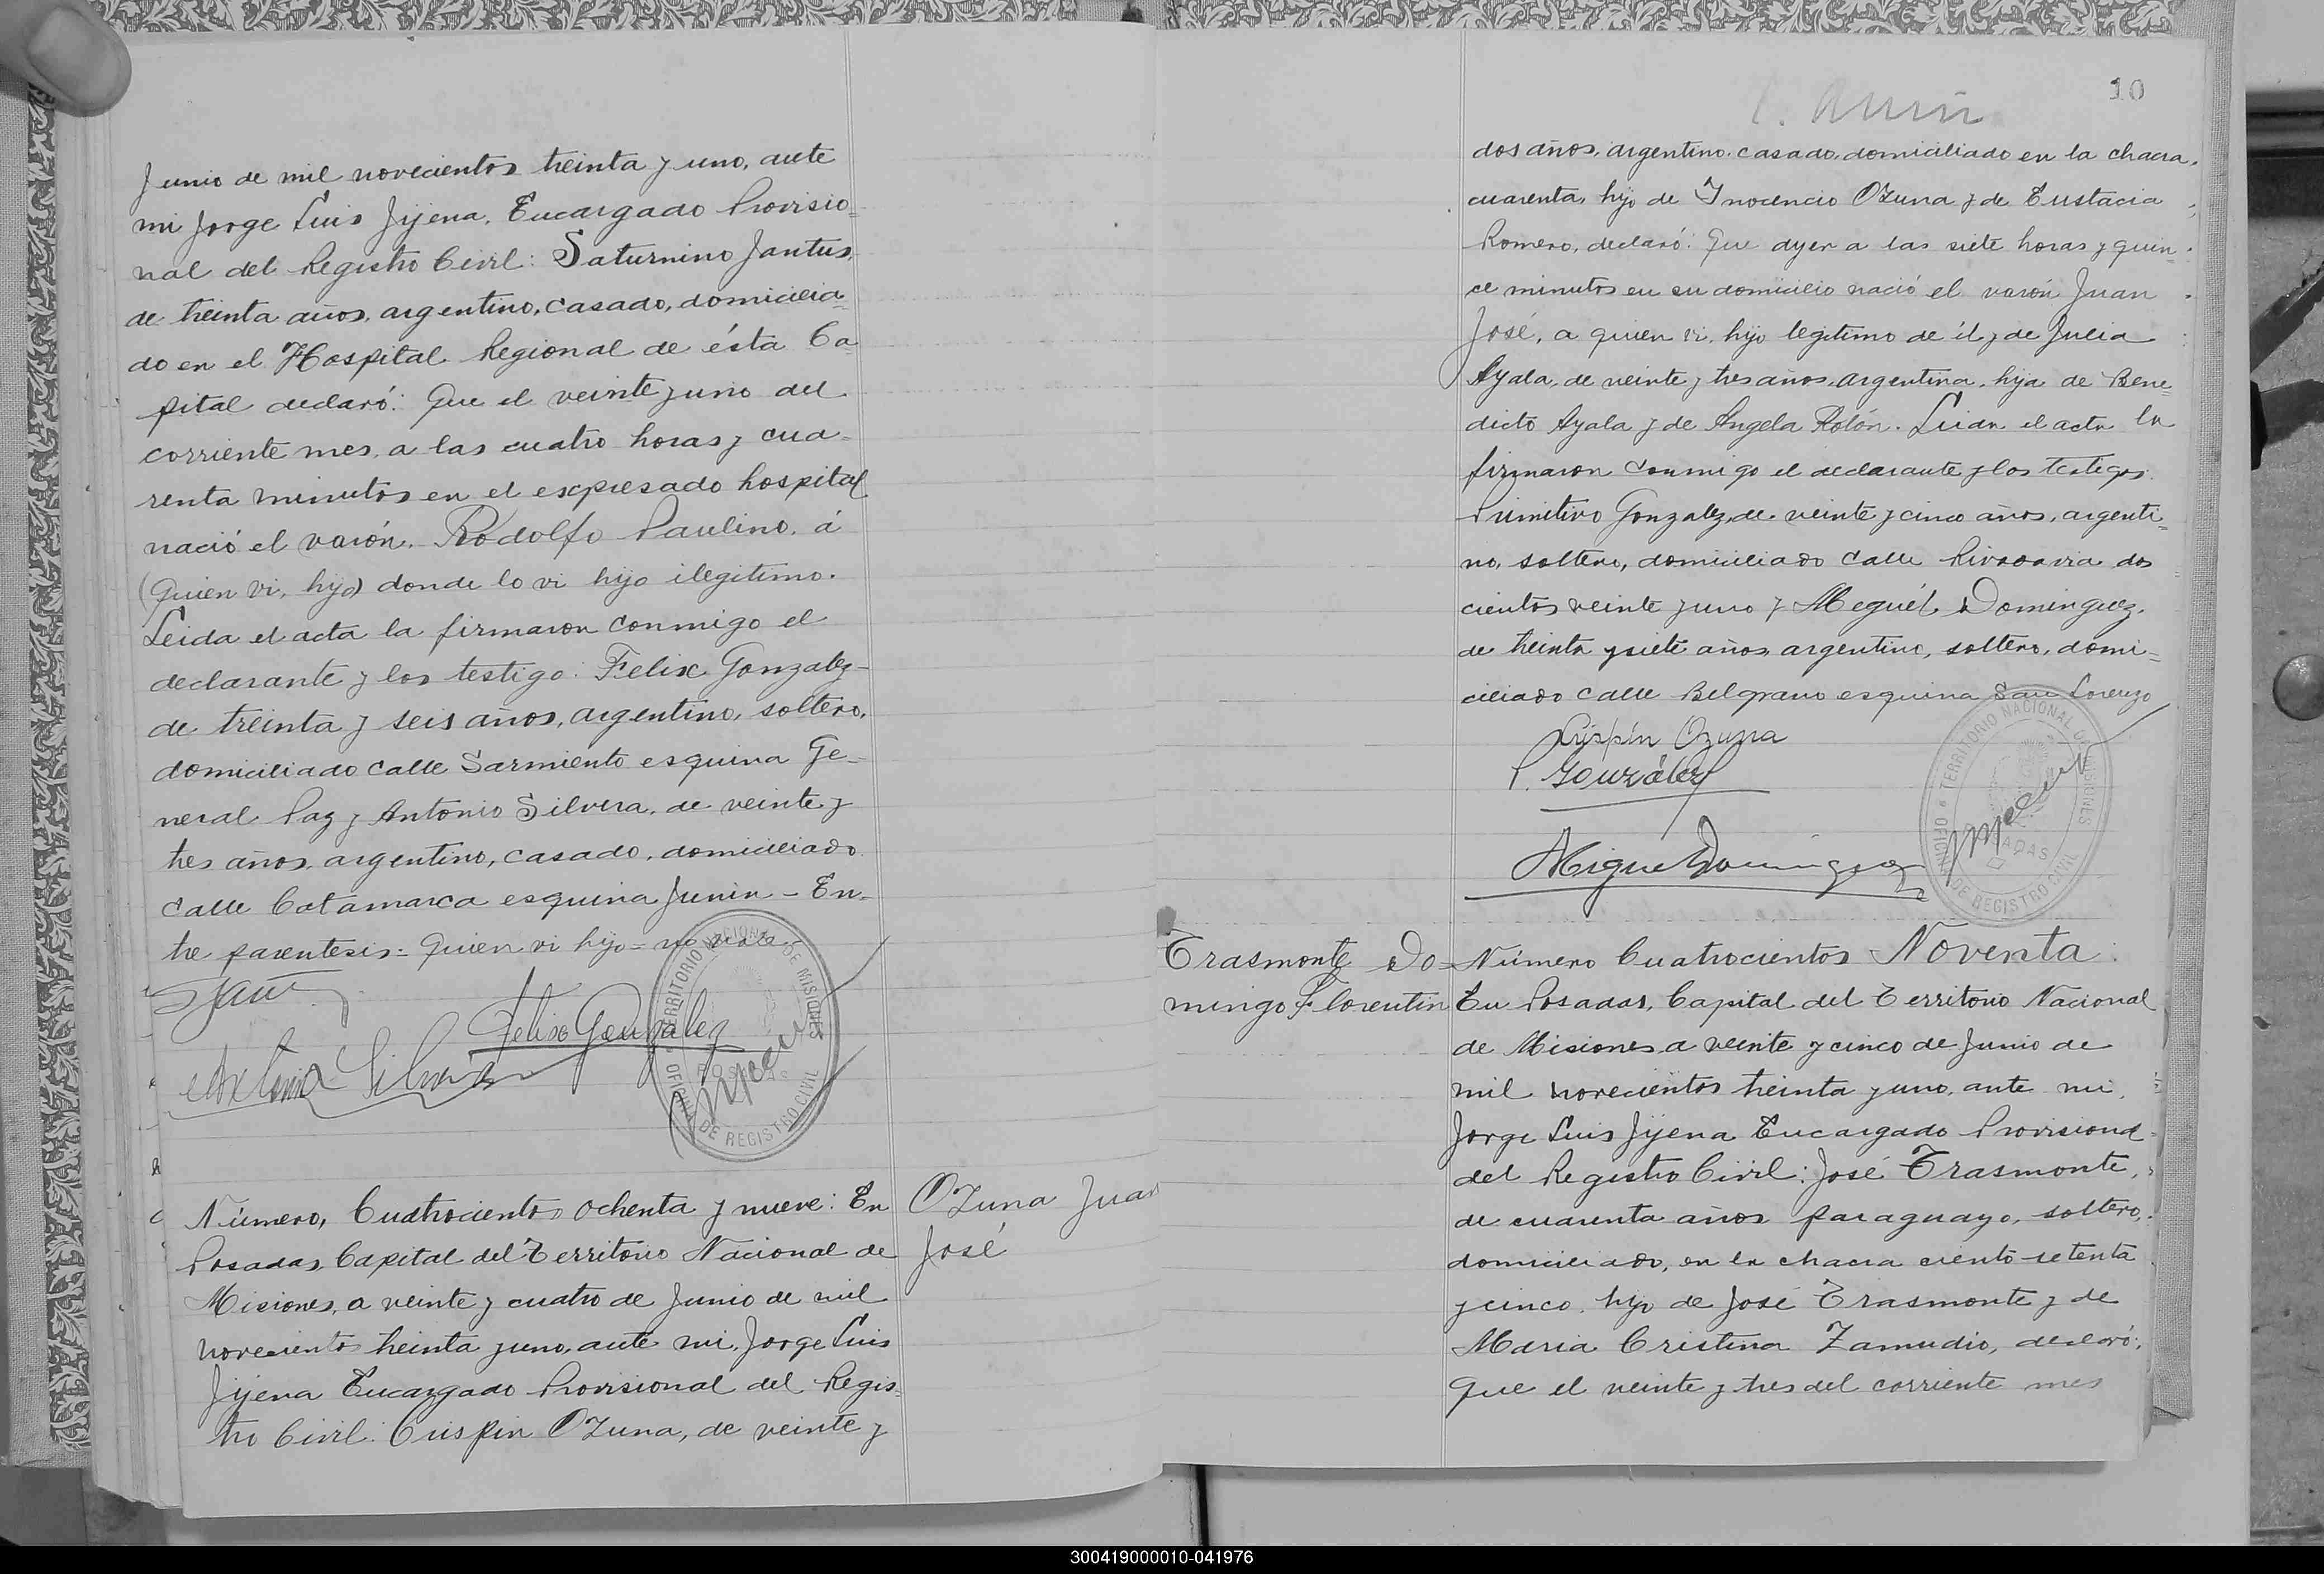 Junio de mil novecientos treinta y uno, ante
mi Jorge Luis Jijena, Encargado Provisio=
nal del Registro Civil: Saturnino Jantus,
de treinta años, argentino, casado, domicilia=
do en el Hospital Regional de ésta Ca=
pital declaró: Que el veinte y uno del
corriente mes, a las cuatro horas y cua=
renta minutos en el expresado hospital
nació el varón. Rodolfo Paulino, á
(quien vi, hijo) donde lo vi hijo ilegitimo.
Leida el acta la firmaron conmigo el
declarante y los testigo: Felix Gonzalez-
de treinta y seis años, argentino, soltero,
domiciliado calle Sarmiento esquina Ge=
neral Paz y Antonio Silvera, de veinte y
tres años, argentino, casado, domiciliado
calle Catamarca esquina Junin - En=
tre parentesis = quien vi hijo = no vale.
Felix Gonzalez
Antonio Silvera
TERRITORIO NACIONAL DE MISIONES
POSADAS
OFICINA DE REGISTRO CIVIL
Ozuna Juan
José
Número, Cuatrocientos ochenta y nueve: En
Posadas, Capital del Territorio Nacional de
Misiones, a veinte y cuatro de Junio de mil
novecientos treinta y uno, ante mi, Jorge Luis
Jijena Encargado Provisional del Regis=
tro Civil: Crispin Ozuna, de veinte y
10
dos años, argentino, casado, domiciliado en la chacra,
cuarenta, hijo de Inocencio Ozuna y de Eustacia
Romero, declaró: Que ayer a las siete horas y quin=
ce minutos en su domicilio nació el varón Juan
José, a quien vi, hijo legitimo de él y de Julia
Ayala, de veinte y tres años, argentina, hija de Bene=
dicto Ayala y de Angela Rolón. Leida el acta la
firmaron conmigo el declarante y los testigos:
Primitivo Gonzalez, de veinte y cinco años, argenti=
no, soltero, domiciliado calle Rivadavia dos
cientos veinte y uno y Meguél Dominguez,
de treinta y siete años argentino, soltero, domi=
ciliado calle Belgrano esquina San Lorenzo
Crispín Ozuna
P. González
Miguel Dominguez
TERRITORIO NACIONAL DE MISIONES
POSADAS
OFICINA DE REGISTRO CIVIL
Trasmonte Do=
mingo Florentin
Número Cuatrocientos Noventa:
En Posadas, Capital del Territorio Nacional
de Misiones a veinte y cinco de Junio de
mil novecientos treinta y uno, ante mi,
Jorge Luis Jijena Encargado Provisional
del Registro Civil: José Trasmonte,
de cuarenta años paraguayo, soltero,
domiciliado, en la chacra ciento setenta
y cinco, hijo de José Trasmonte y de
Maria Cristina Zamudio, declaró:
Que el veinte y tres del corriente mes
300419000010-041976